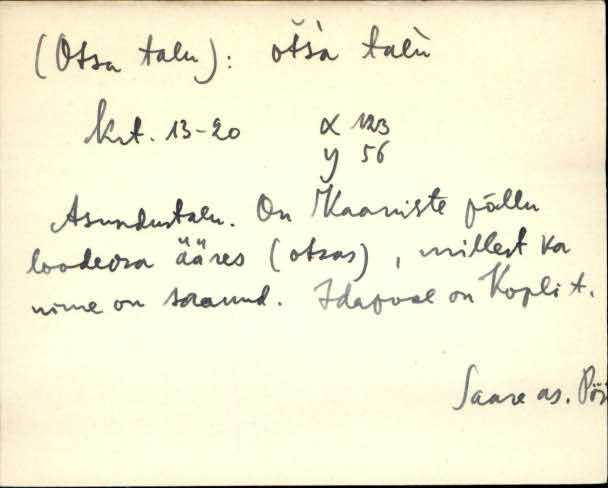 (Otsa talu): ot̆s̀a talù
Krt. 13-20 x 123
y 56
Asundustalu. On Kaaniste põllu
loodeosa ääres (otsas), millest ka
nime on saanud. Idapool on Kopli t.
Saare as. Pöi